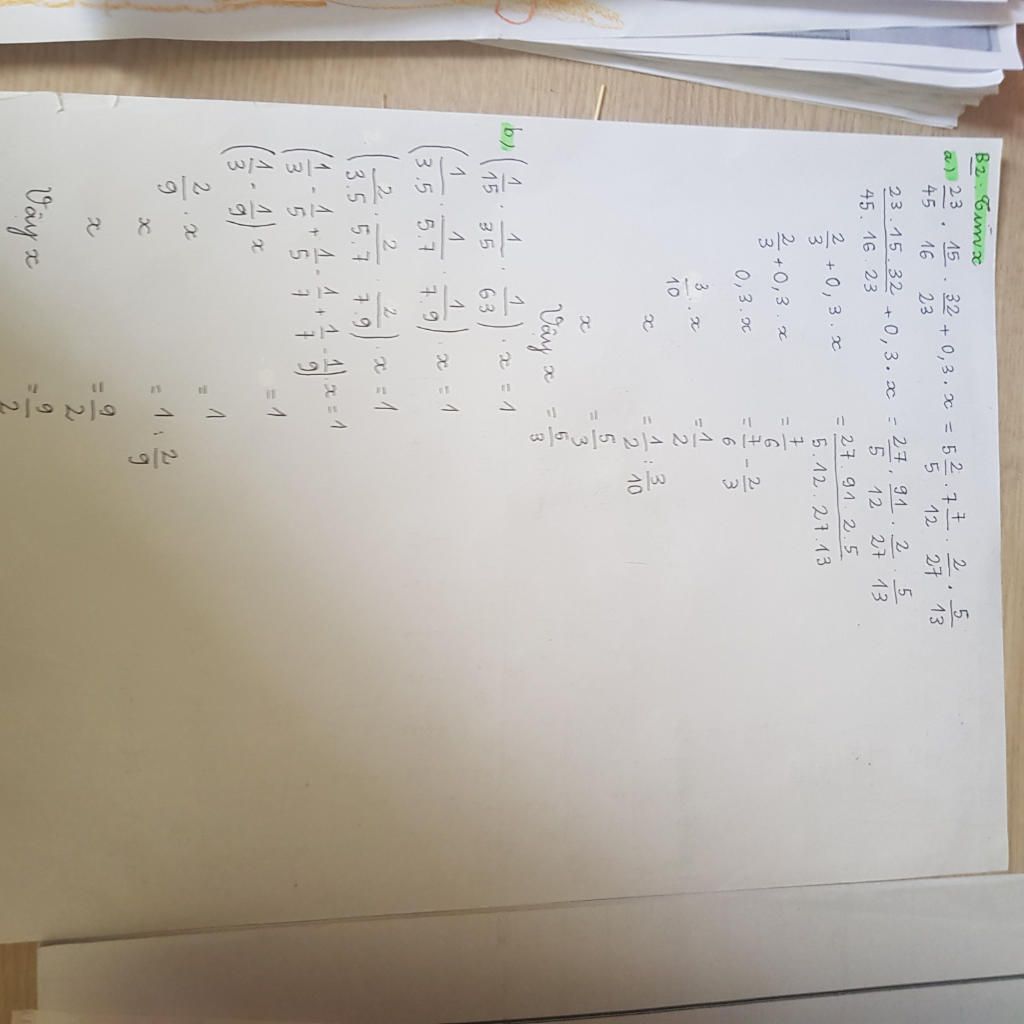 B2: Tìm x
a) 23/45 . 15/16 . 32/23 + 0,3 . x = 5 2/5 . 7 7/12 . 2/27 . 5/13
23.15.32/45.16.23 + 0,3 . x = 27/5 . 91/12 . 2/27 . 5/13
2/3 + 0,3 . x = 27.91.2.5/5.12.27.13
2/3 + 0,3 . x = 7/6
0,3 . x = 7/6 - 2/3
3/10 . x = 1/2
x = 1/2 : 3/10
x = 5/3
Vậy x = 5/3
b) (1/15 . 1/35 . 1/63) . x = 1
(1/3.5 . 1/5.7 . 1/7.9) . x = 1
(2/3.5 . 2/5.7 . 2/7.9) . x = 1
(1/3 - 1/5 + 1/5 - 1/7 + 1/7 - 1/9) . x = 1
(1/3 - 1/9) x = 1
2/9 . x = 1
x = 1 : 2/9
x = 9/2
Vậy x = 9/2